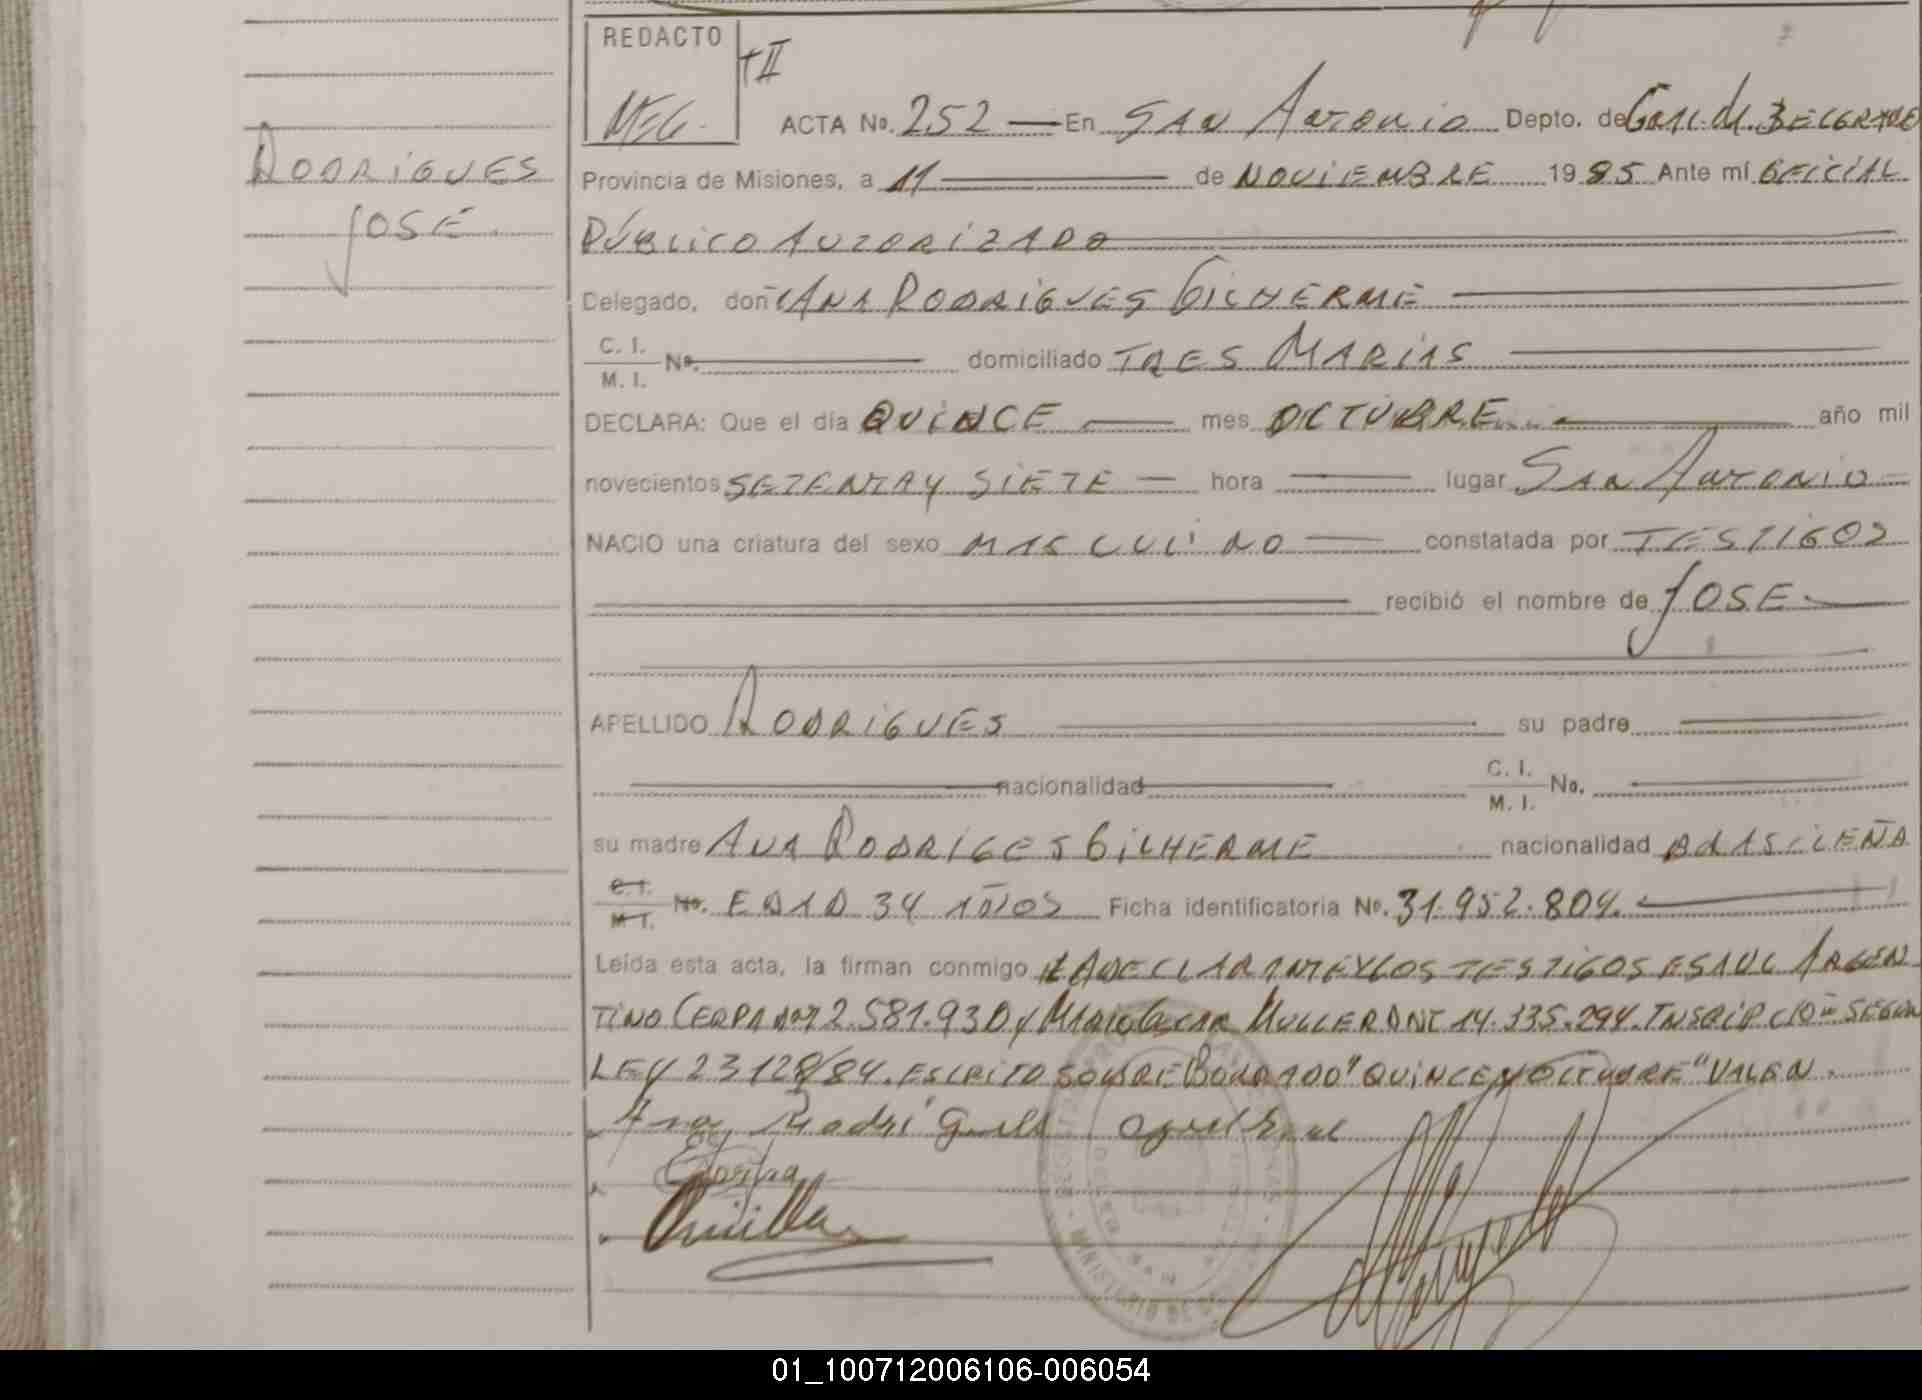 REDACTO
+II
ACTA No. 252 — En SAN ANTONIO Depto. de GRAL. M. BELGRANO
RODRIGUES
JOSE.
Provincia de Misiones, a 11 — de NOVIEMBRE 1985 Ante mí OFICIAL
PÚBLICO AUTORIZADO
Delegado, doña ANA RODRIGUES GILHERME
C. I.
M. I.
No. domiciliado TRES MARIAS
DECLARA: Que el día QUINCE — mes OCTUBRE — año mil
novecientos SETENTA Y SIETE — hora — lugar SAN ANTONIO —
NACIO una criatura del sexo MASCULINO — constatada por TESTIGOS
recibió el nombre de JOSE —
APELLIDO RODRIGUES — su padre —
nacionalidad — C. I.
M. I. No. —
su madre ANA RODRIGES GILHERME nacionalidad BRASILEÑA
C. I.
M. I.
No. EDAD 34 AÑOS Ficha identificatoria No. 31.952.804. —
Leída esta acta, la firman conmigo LA DECLARANTE Y LOS TESTIGOS ESAUL ARGEN
TINO CERPA 2.581.930 y MARIO MULLER DNI 14.335.294. INSCRIPCIÓN SEGUN
LEY 23128/84. ESCRITO SOBRE BORRADO "QUINCE y OCTUBRE" VALEN.
Ana Rodri
MINISTERIO DE
01_100712006106-006054